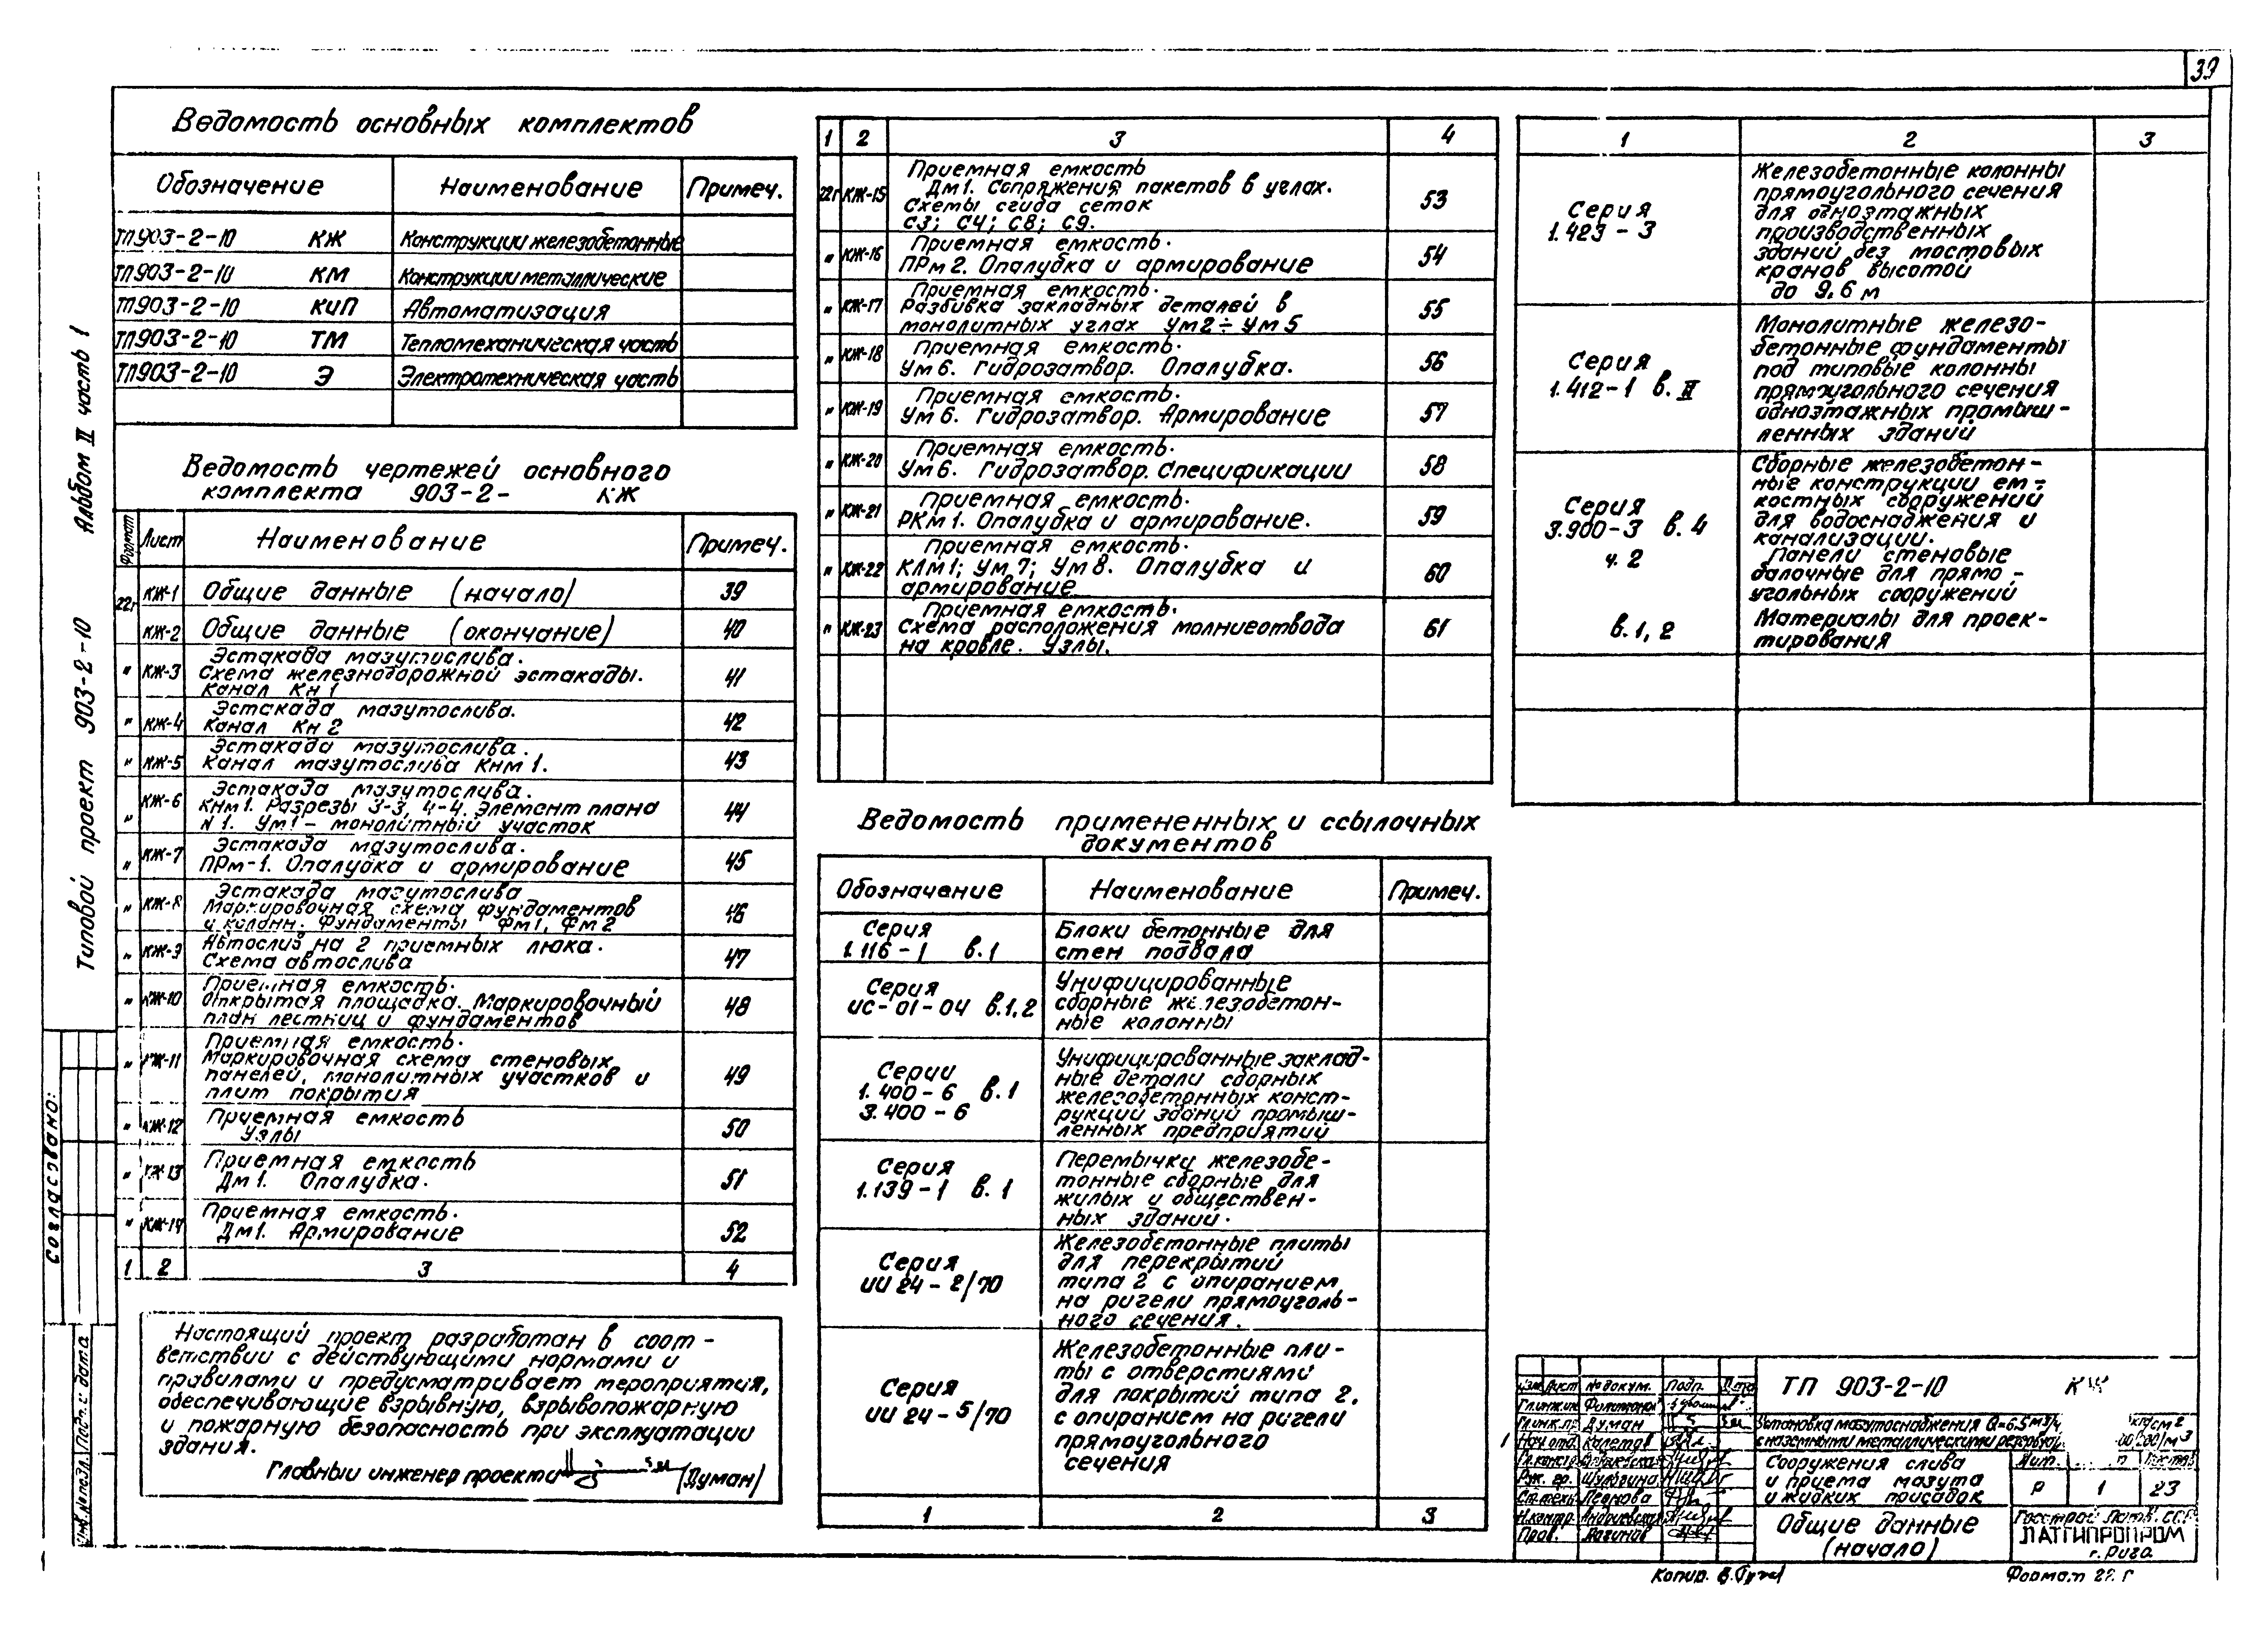 39
Типовой проект 903-2-10 Альбом II часть 1
Согласовано:
Подп. и дата
Ведомость основных комплектов
Обозначение Наименование Примеч.
ТП903-2-10 КЖ Конструкции железобетонные
ТП903-2-10 КМ Конструкции металлические
ТП903-2-10 КиП Автоматизация
ТП903-2-10 ТМ Тепломеханическая часть
ТП903-2-10 Э Электротехническая часть
Ведомость чертежей основного
комплекта 903-2- КЖ
Формат Лист Наименование Примеч.
22г КЖ-1 Общие данные (начало) 39
КЖ-2 Общие данные (окончание) 40
Эстакада мазутослива.
" КЖ-3 Схема железнодорожной эстакады. 41
Канал Кн 1
Эстакада мазутослива.
" КЖ-4 Канал Кн 2 42
Эстакада мазутослива.
" КЖ-5 Канал мазутослива Кнм 1. 43
Эстакада мазутослива.
" КЖ-6 Кнм1. Разрезы 3-3, 4-4. Элемент плана 44
N 1. Ум1 - монолитный участок
Эстакада мазутослива.
" КЖ-7 ПРм-1. Опалубка и армирование 45
Эстакада мазутослива
" КЖ-8 Маркировочная схема фундаментов 46
и колонн. Фундаменты Фм1, Фм2
" КЖ-9 Автослив на 2 приемных люка. 47
Схема автослива
Приемная емкость.
" КЖ-10 Открытая площадка. Маркировочный 48
план лестниц и фундаментов
Приемная емкость.
" КЖ-11 Маркировочная схема стеновых 49
панелей, монолитных участков и
плит покрытия
" КЖ-12 Приемная емкость 50
Узлы
" КЖ-13 Приемная емкость 51
Дм1. Опалубка.
" КЖ-14 Приемная емкость. 52
Дм1. Армирование
1 2 3 4
Настоящий проект разработан в соот-
ветствии с действующими нормами и
правилами и предусматривает мероприятия,
обеспечивающие взрывную, взрывопожарную
и пожарную безопасность при эксплуатации
здания.
Главный инженер проекта (Думан)
1 2 3 4
Приемная емкость
22г КЖ-15 Дм1. Сопряжения пакетов в углах. 53
Схемы сгиба сеток
С3; С4; С8; С9.
Приемная емкость.
" КЖ-16 ПРм 2. Опалубка и армирование 54
Приемная емкость.
" КЖ-17 Разбивка закладных деталей в 55
монолитных углах Ум2÷Ум5
Приемная емкость.
" КЖ-18 Ум6. Гидрозатвор. Опалубка. 56
Приемная емкость.
" КЖ-19 Ум6. Гидрозатвор. Армирование 57
Приемная емкость.
" КЖ-20 Ум6. Гидрозатвор. Спецификации 58
Приемная емкость.
" КЖ-21 РКм1. Опалубка и армирование. 59
Приемная емкость.
" КЖ-22 КЛм1; Ум7; Ум8. Опалубка и 60
армирование
Приемная емкость.
" КЖ-23 Схема расположения молниеотвода 61
на кровле. Узлы.
Ведомость примененных и ссылочных
документов
Обозначение Наименование Примеч.
Серия Блоки бетонные для
1.116-1 в.1 стен подвала
Серия Унифицированные
ИС-01-04 в.1,2 сборные железобетон-
ные колонны
Унифицированные заклад-
Серии ные детали сборных
1.400-6 в.1 железобетонных конст-
3.400-6 рукций зданий промыш-
ленных предприятий
Серия Перемычки железобе-
1.139-1 в.1 тонные сборные для
жилых и обществен-
ных зданий.
Железобетонные плиты
Серия для перекрытий
ИИ 24-2/70 типа 2 с опиранием
на ригели прямоуголь-
ного сечения.
Железобетонные пли-
ты с отверстиями
Серия для покрытий типа 2,
ИИ 24-5/70 с опиранием на ригели
прямоугольного
сечения
1 2 3
1 2 3
Железобетонные колонны
прямоугольного сечения
Серия для одноэтажных
1.423-3 производственных
зданий без мостовых
кранов высотой
до 9,6 м
Монолитные железо-
бетонные фундаменты
Серия под типовые колонны
1.412-1 в. II прямоугольного сечения
одноэтажных промыш-
ленных зданий
Сборные железобетон-
ные конструкции ем-
Серия костных сооружений
3.900-3 в. 4 для водоснабжения и
канализации.
ч. 2 Панели стеновые
балочные для прямо-
угольных сооружений
в. 1, 2 Материалы для проек-
тирования
Изм Лист № докум. Подп. Дата
Гл.инж.пр. Думан
Нач.отд. Калетов
Рук. гр. Шульгина
Ст.техн. Леонова
Н.контр. Андриевская
Пров. Логинов
ТП 903-2-10 КЖ
Установка мазутоснабжения Q=6.5м3/ч кг/см2
с наземными металлическими резервуар
Сооружения слива
и приема мазута
и жидких присадок
Лит.
Р 1 23
Общие данные
(начало)
Госстрой Латв. ССР
ЛАТГИПРОПРОМ
г. Рига
Копир.
Формат 22 Г